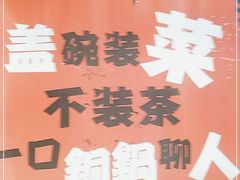 盖碗装菜
不装茶
一口铜锅聊人